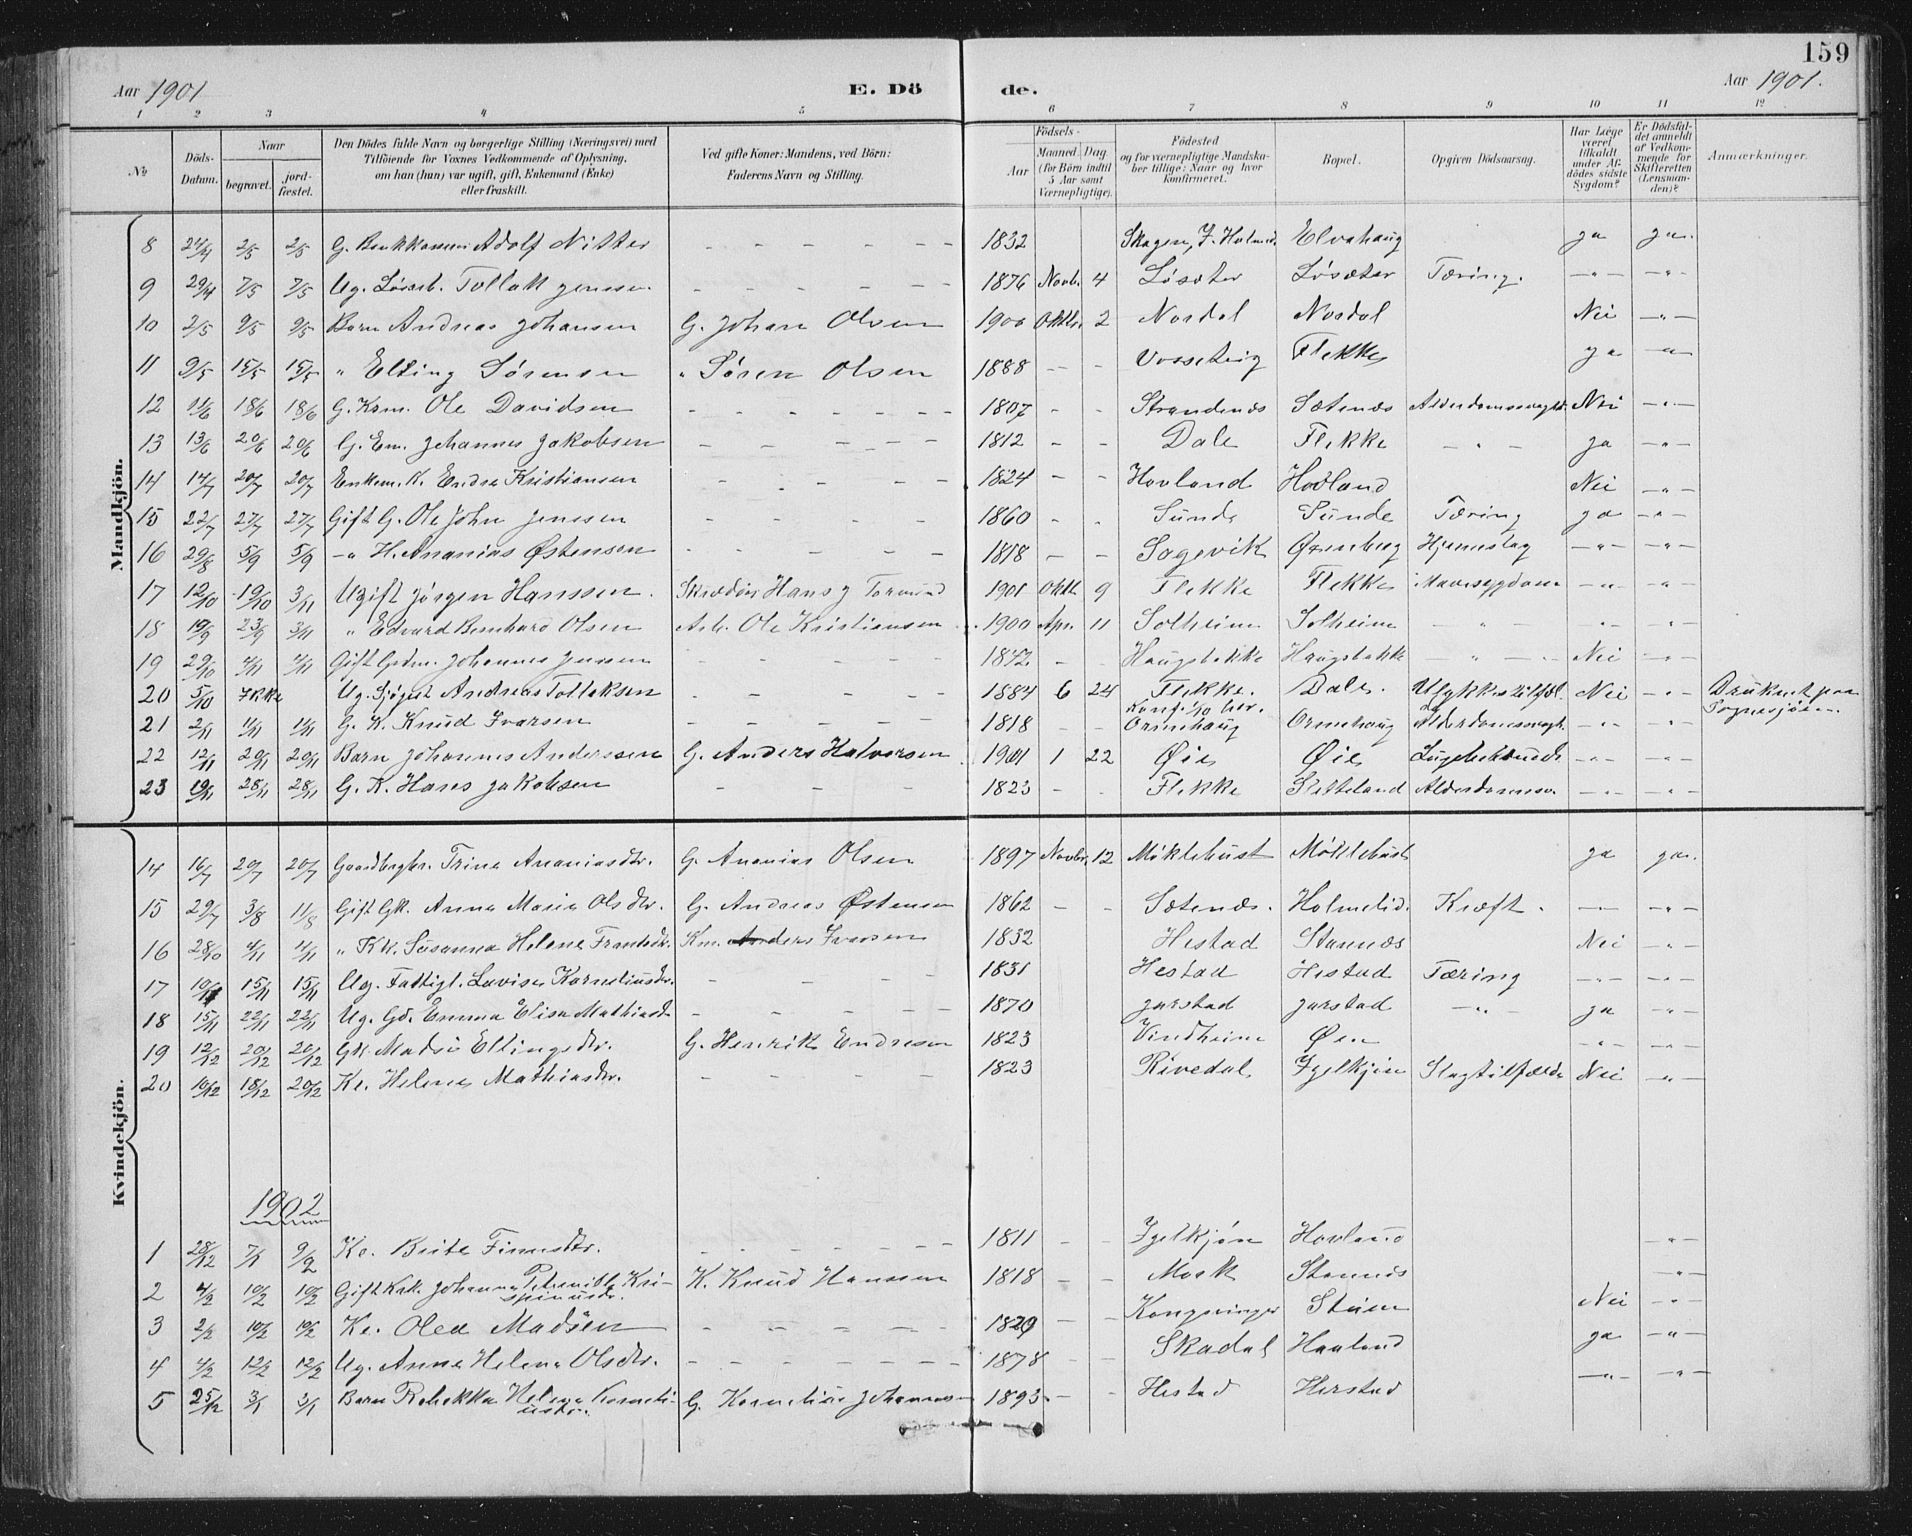 159
Aar 1901 E. Dö de. Aar 1901.
1 2 3 4 5 6 7 8 9 10 11 12
№ Döds-Datum. Naar begravet. jord-fæstet. Den Dödes fulde Navn og borgerlige Stilling (Næringsvei) med Tilföiende for Voxnes Vedkommende af Oplysning, om han (hun) var ugift, gift, Enkemand (Enke) eller fraskilt. Ved gifte Koner: Mandens, ved Börn: Faderens Navn og Stilling. Födsels- Aar Maaned. Dag. (for Börn indtil 5 Aar samt Værnepligtige). Födested og for værnepligtige Mandskaber tillige: Naar og hvor konfirmeret. Bopæl. Opgiven Dödsaarsag. Har Læge været tilkaldt under Afdödes sidste Sygdom? Er Dödsfaldet anmeldt af Vedkommende for Skifteretten (Lensmanden)? Anmærkninger.
Mandkjön.
8 24/4 2/5 2/5 G. Adolf Nitter - - - 1832 Skagen, Y. Holmed. Elvahaug ja ja.
9 29/4 7/5 7/5 Ug. Løsarb. Tollak Jenssen - - - 1876 Novb. 4 Løsæter Løsæter Tæring. -"- -"-
10 2/5 9/5 9/5 Barn Andreas Johansen G. Johan Olsen 1900 Oktbr. 2 Nordal Nordal Nei -"-
11 9/5 15/5 15/5 " Elting Sørensen " Søren Olsen 1888 - - Vosseteig Flekke ja -"-
12 11/6 18/6 18/6 G. Krm. Ole Davidsen - - - 1807 - - Strandenæs Sætenæs Alderdomssvagh. Nei -"-
13 13/6 20/6 20/6 G. Em. Johannes Jakobsen - - - 1812 - - Dale Flekke - " - ja -"-
14 14/7 20/7 20/7 Enkem. K. Endre Kristiansen - - - 1824 - - Hovland Hovland Nei -"-
15 22/7 27/7 27/7 Gift G. Ole John Jenssen - - - 1860 - - Sunde Sunde Tæring ja -"-
16 29/8 5/9 5/9 -" H. Ananias Østensen - - - 1818 - - Sagevik Ørenberg Hjerneslag -"- -"-
17 12/10 19/10 3/11 Ugift Jørgen Hanssen. Skrædder Hans J Tormund 1901 Oktb. 9 Flekke Flekke Mavesygdom -"- -"-
18 19/9 23/9 3/11 " Edvard Bernhard Olsen Arb. Ole Kristiansen 1900 Apr. 11 Solheim Solheim - " - -"- -"-
19 29/10 4/11 4/11 Gift Grdm. Johannes Jenssen - - - 1842 - - Haugsbakke Haugsbakke - " - Nei -"-
20 5/10 Ikke Ug. Sjøgut Andreas Tollaksen - - - 1884 6 24 Flekke. Konf. 1/10 her. Dale. Ulykkestilfæl. Nei -"- Druknet paa Sognesjøen
21 2/11 11/11 11/11 G. K. Knud Ivarsen - - - 1818 - - Ormehaug Ormehaug Alderdomssvagh. -"- -"-
22 12/11 20/11 20/11 Barn Johannes Anderssen G. Anders Halvorsen 1901 1 22 Øie Øie -"- -"-
23 19/11 28/11 28/11 G. K. Hans Jakobsen - - - 1823 - - Flekke Sletteland Alderdomssv. -"- -"-
Kvindekjön.
14 16/7 20/7 20/7 Trine Ananiasdtr. G. Ananias Olsen 1897 Novbr. 12 Møklebust Møklebust ja ja.
15 29/7 3/8 11/8 Gift Gk. Anna Maria Olsdtr. G. Andreas Østensen 1862 - - Sætenæs. Holmelid. Kræft. -"- -"-
16 28/10 4/11 4/11 " Kk. Susanna Helene Km. Anders Ivarsen 1832 Hestad Stannæs Nei -"-
17 10/11 15/11 15/11 Ug. Fattigl. Lovise Korneliusdtr. - - - 1831 Hestad Hestad Tæring -"- -"-
18 15/11 22/11 22/11 Ug. Gd. Emma Elisa Mathiasd. - - - 1870 Jarstad Jarstad -"- ja -"-
19 12/12 20/12 20/12 Gk. Madsi Eltingsdtr. G. Henrik Endresen 1823 Vindheim Øen -"- -"-
20 10/12 18/12 20/12 Ke. Helene Mathiasdtr. - - - 1823 Rivedal Igelkjøn Slagtilfælde Nei -"-
1902
1 28/12 7/1 9/2 Ke. Brite Finnsdtr. - - - 1811 - - Igelkjøn Hovland -"-
2 4/2 10/2 10/2 Gift Kk. Johanna Petronille Krispinusdtr. K. Knud Hanssen 1818 - - Mork Stannes -"-
3 2/2 10/2 10/2 Ke. Olea Madsen - - - 1829 Kongsvinger Steien Nei -"-
4 4/2 12/2 12/2 Ug. Anne Helene Olsdtr. - - - 1878 - - Skadal Haaland ja -"-
5 25/12 3/1 3/1 Barn Rebekka Helene Korneliusdtr. G. Kornelius Johannessen 1893 - - Hestad Herstad -"- -"-